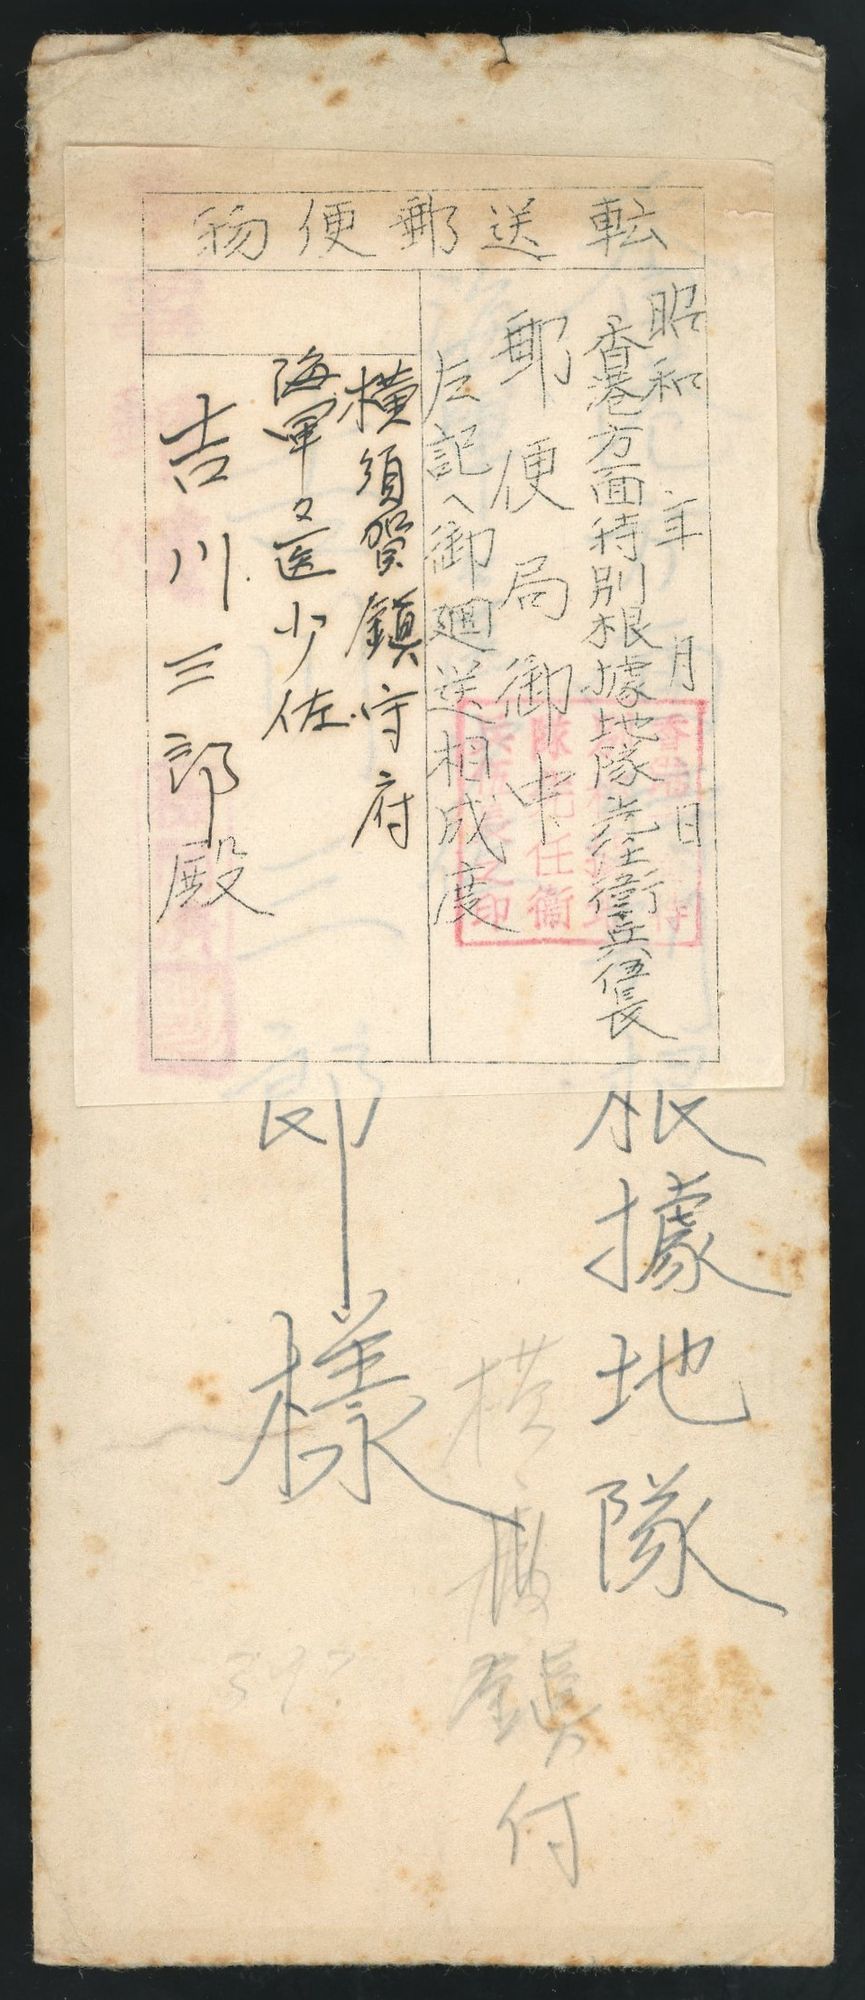 転送郵便物
昭和 年 月 日
香港方面特別根據地隊先任衛兵伍長
郵便局御中
左記へ御廻送相成度
横須賀鎮守府
海軍々医少佐
吉川三郎殿
根據地隊
郎様
横須鎮付